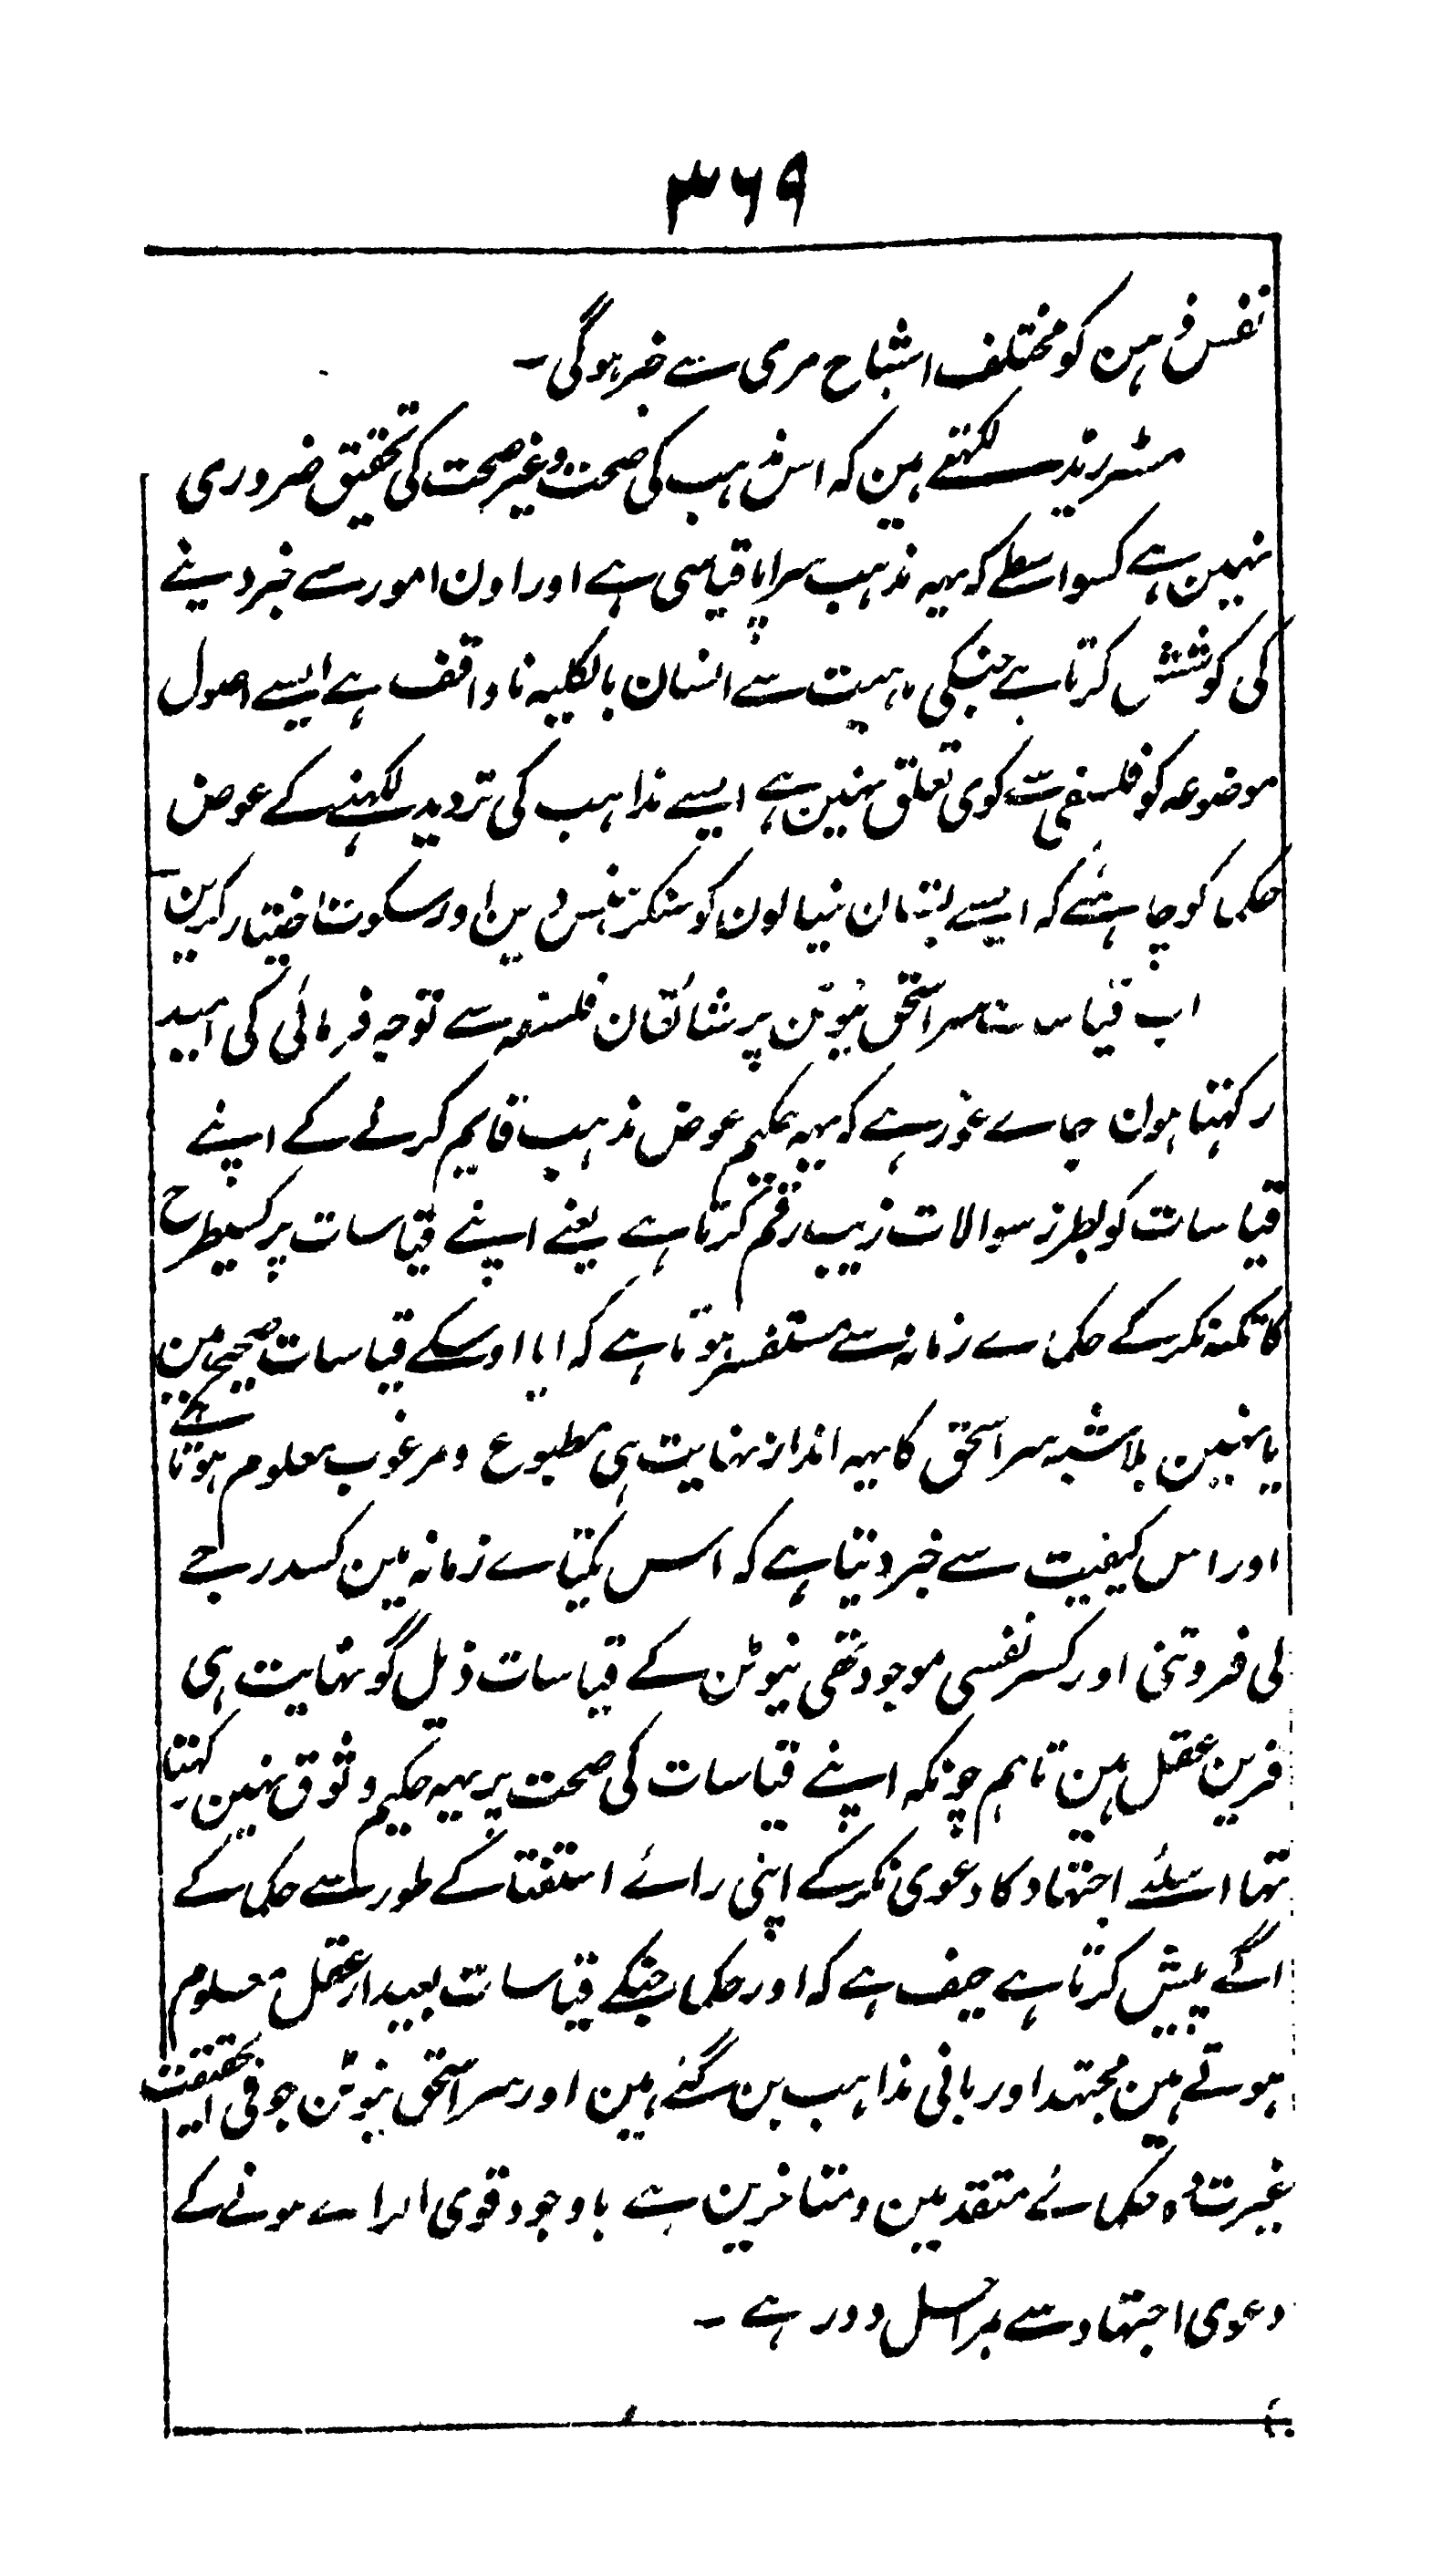 ۳۶۹
نفس ذہین کو مختلف اشباح مری سے خبر ہوگی۔
مسٹر رید لکہتے ہین کہ اس مذہب کی صحت و غیر صحت کی تحقیق ضروری
نہین ہے کسواسطے کہ یہہ مذہب سراپا قیاسی ہے اور اون امور سے خبر دینے
کی کوشش کرتا ہے جنکی ماہیت سے انسان بالکلیہ ناواقف ہے ایسے اصول
موضوعہ کو فلسفہ سے کوی تعلق نہین ہے ایسے مذاہب کی تردید لکہنے کے عوض
حکما کو چاہئے کہ ایسے خیالون کو سنکر ہنس دین اور سکوت اختیار کرین
اب قیاسات سر اسحق نیوٹن پر شائقان فلسفہ سے توجہ فرمائی کی امید
رکہتا ہون جاے غور ہے کہ یہہ حکیم عوض مذہب قایم کرنے کے اپنے
قیاسات کو بطرز سوالات زیب رقم کرتا ہے یعنے اپنے قیاسات پر کسیطرح
کا تکیہ نکرکے حکماے زمانہ سے مستفسر ہوتا ہے کہ ایا اوسکے قیاسات صحیح ہین
یا نہین بلاشبہ سر اسحق کا یہہ انداز نہایت ہی مطبوع و مرغوب معلوم ہوتا ہے
اور اس کیفیت سے خبر دیتا ہے کہ اس یکتاے زمانہ مین کسدرجے
کی فروتنی اور کسر نفسی موجود تھی نیوٹن کے قیاسات ذیل گو نہایت ہی
قرین عقل ہین تاہم چونکہ اپنے قیاسات کی صحت پر یہہ حکیم وثوق نہین رکہتا
تہا اسلئے اجتہاد کا دعوی نکرکے اپنی رائے استفتا کے طور سے حکما کے
اگے پیش کرتا ہے حیف ہے کہ اور حکما جنکے قیاسات بعید از عقل معلوم
ہوتے ہین مجتہد اور بانی مذاہب بن گئے ہین اور سر اسحق نیوٹن جو فی الحقیقت
غیرت دہ حکمائے متقدمین و متاخرین ہے باوجود قوی الراے ہونے کے
دعوی اجتہاد سے بمراحل دور ہے۔